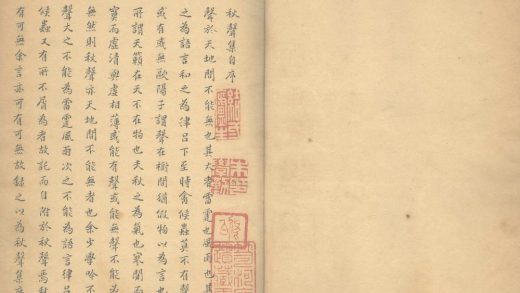 秋聲集自序
聲於天地間不能無也其大者雷霆也風雨也其
之為語言和之為律呂下至時禽候蟲莫不有聲
或有或無歐陽子謂聲在樹間猶假物以為言也
所謂天籟在天不在物也夫秋之為氣也寥而
而虛清與虛相薄或能有聲或能不能必
無然則秋聲亦天地間不能無者也余少學吟不
聲大之不能為雷霆風雨次之不能為語言律
候蟲又有所不屑為者故託而自附於秋聲焉秋
有可無余言亦可有可無故錄之以為秋聲集